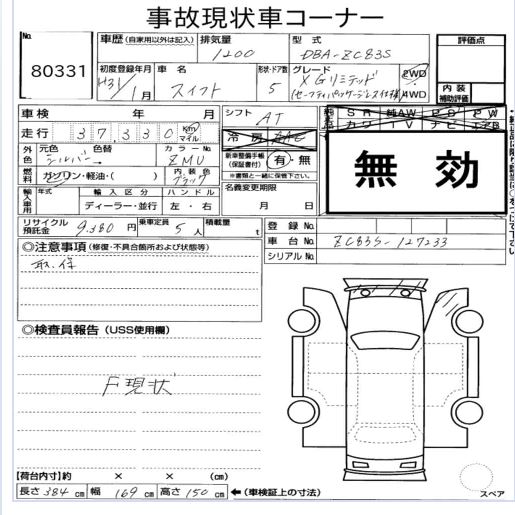 事故現状車コーナー
No. 80331
車歴 (自家用以外は記入) 排気量 1200 型式 DBA-ZC83S
評価点
初度登録年月 H31/1月 車名 スイフト 形状・ドア数 5 グレード XGリミテッド (セーフティパッケージレス仕様) 2WD AWD
内装補助評価
車検 年 月 シフト AT
走行 37,330 Km マイル 冷房 AAC
純正 SR 純AW PS PW
カワ TV ナビ エアB
無効
外色 元色 シルバー 色替 カラーNo. ZMU
新車整備手帳 (保証書付) 有・無
※書類と一緒に保管下さい。
燃料 ガソリン・軽油・( ) 内装色 ブラック
名義変更期限
月 日
輸入車用 年式 輸入区分 ハンドル
ディーラー・並行 左・右
リサイクル預託金 9,380円 乗車定員 5人 積載量 t
登録No.
車台No. ZC83S-127233
シリアルNo.
◎注意事項 (修復・不具合箇所および状態等)
取,保
◎検査員報告 (USS使用欄)
F現状
【荷台内寸】約 × × (cm)
長さ 384 cm 幅 169 cm 高さ 150 cm ←(車検証上の寸法)
スペア